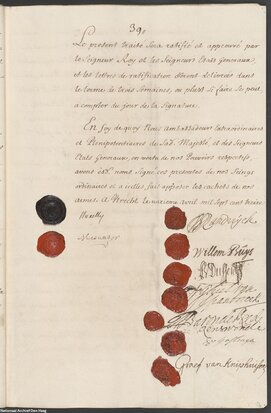 39.
Le present traité sera ratifié et approuvé par
le Seigneur Roy et les Seigneurs Etats Generaux,
et les lettres de ratification seront delivrées dans
le terme de trois semaines, ou plutôt si faire se peut
a compter du jour de la signature.
En foy de quoy Nous ambassadeurs extraordinaires
et Plenipotentiaires de Sad. Majesté et des Seigneurs
Etats Generaux, en vertu de nos Pouvoirs respectifs,
avons esd. noms signé ces presentes de nos seings
ordinaires et a icelles fait apposer les cachets de nos
armes. a Utrecht le onzieme avril mil sept cens treize
Huxelles
Mesnager
Randwyck
Willem Buys
B. v. Dussen
Graef van Kniphuisen
Nationaal Archief Den Haag